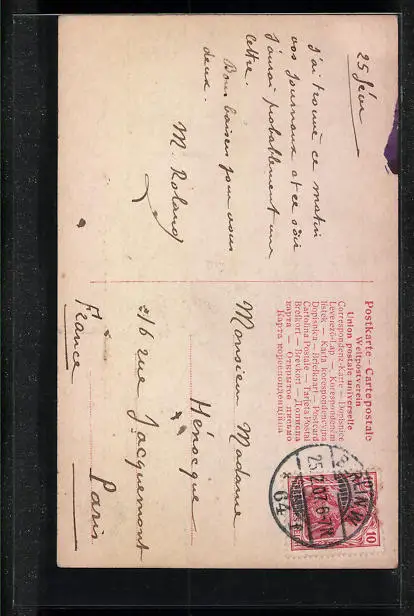 25 févr
J'ai trouvé ce matin
vos journaux et ce soir
j'aurai probablement une
lettre.
Bons baisers pour vous
deux.
M. Roland
Postkarte – Carte postale
Weltpostverein
Union postale universelle
Correspondenz-Karte – Dopisnice
Levelező-Lap – Korespondentni
listek – Karta korespondencyjna
Dopisnica – Briefkaart – Postcard
Cartolina Postale – Tarjeta Postal
Brefkort – Brevkort – Дописна
карта – Открытое письмо
Карта кореспонденційна
Monsieur Madame
Hénocque
2/6 rue Jacquemont
Paris
France
BERLIN, W
25.2.07. 6-7N
* 64
10